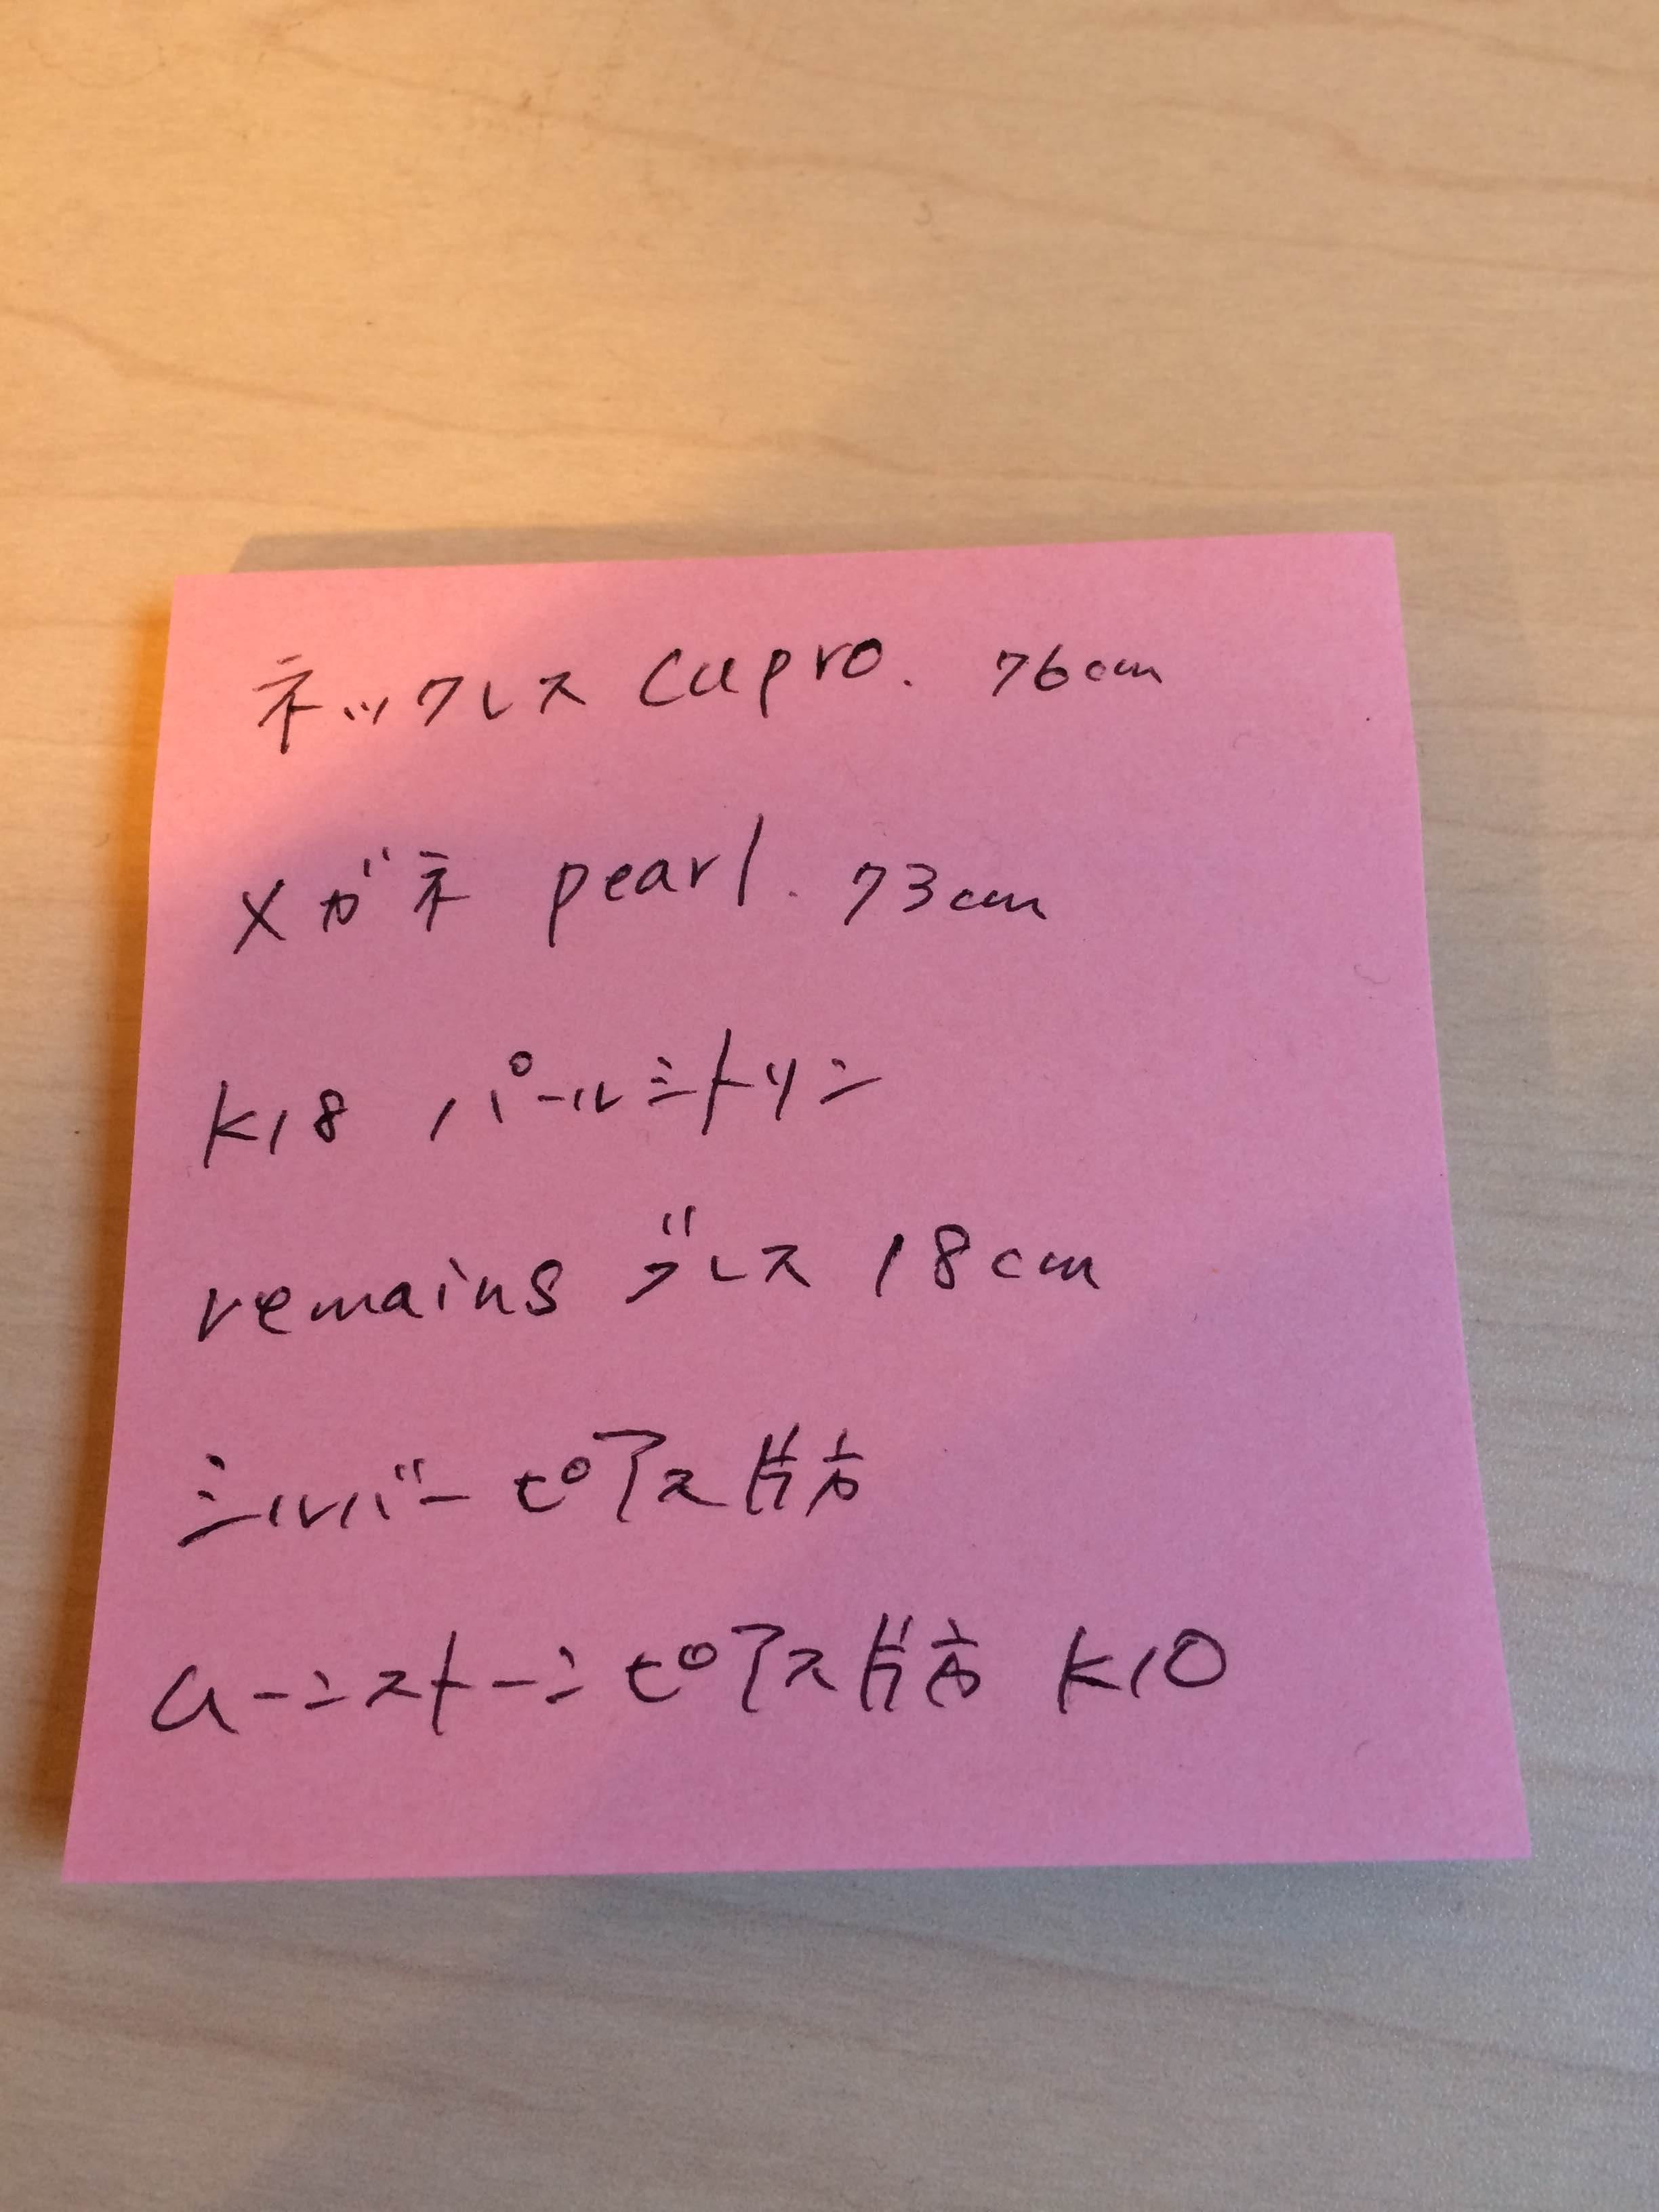 ネックレス cupro. 76cm
メガネ pearl. 73cm
K18 パールシトリン
remains ブレス 18cm
シルバーピアス片方
ムーンストーンピアス片方 K10